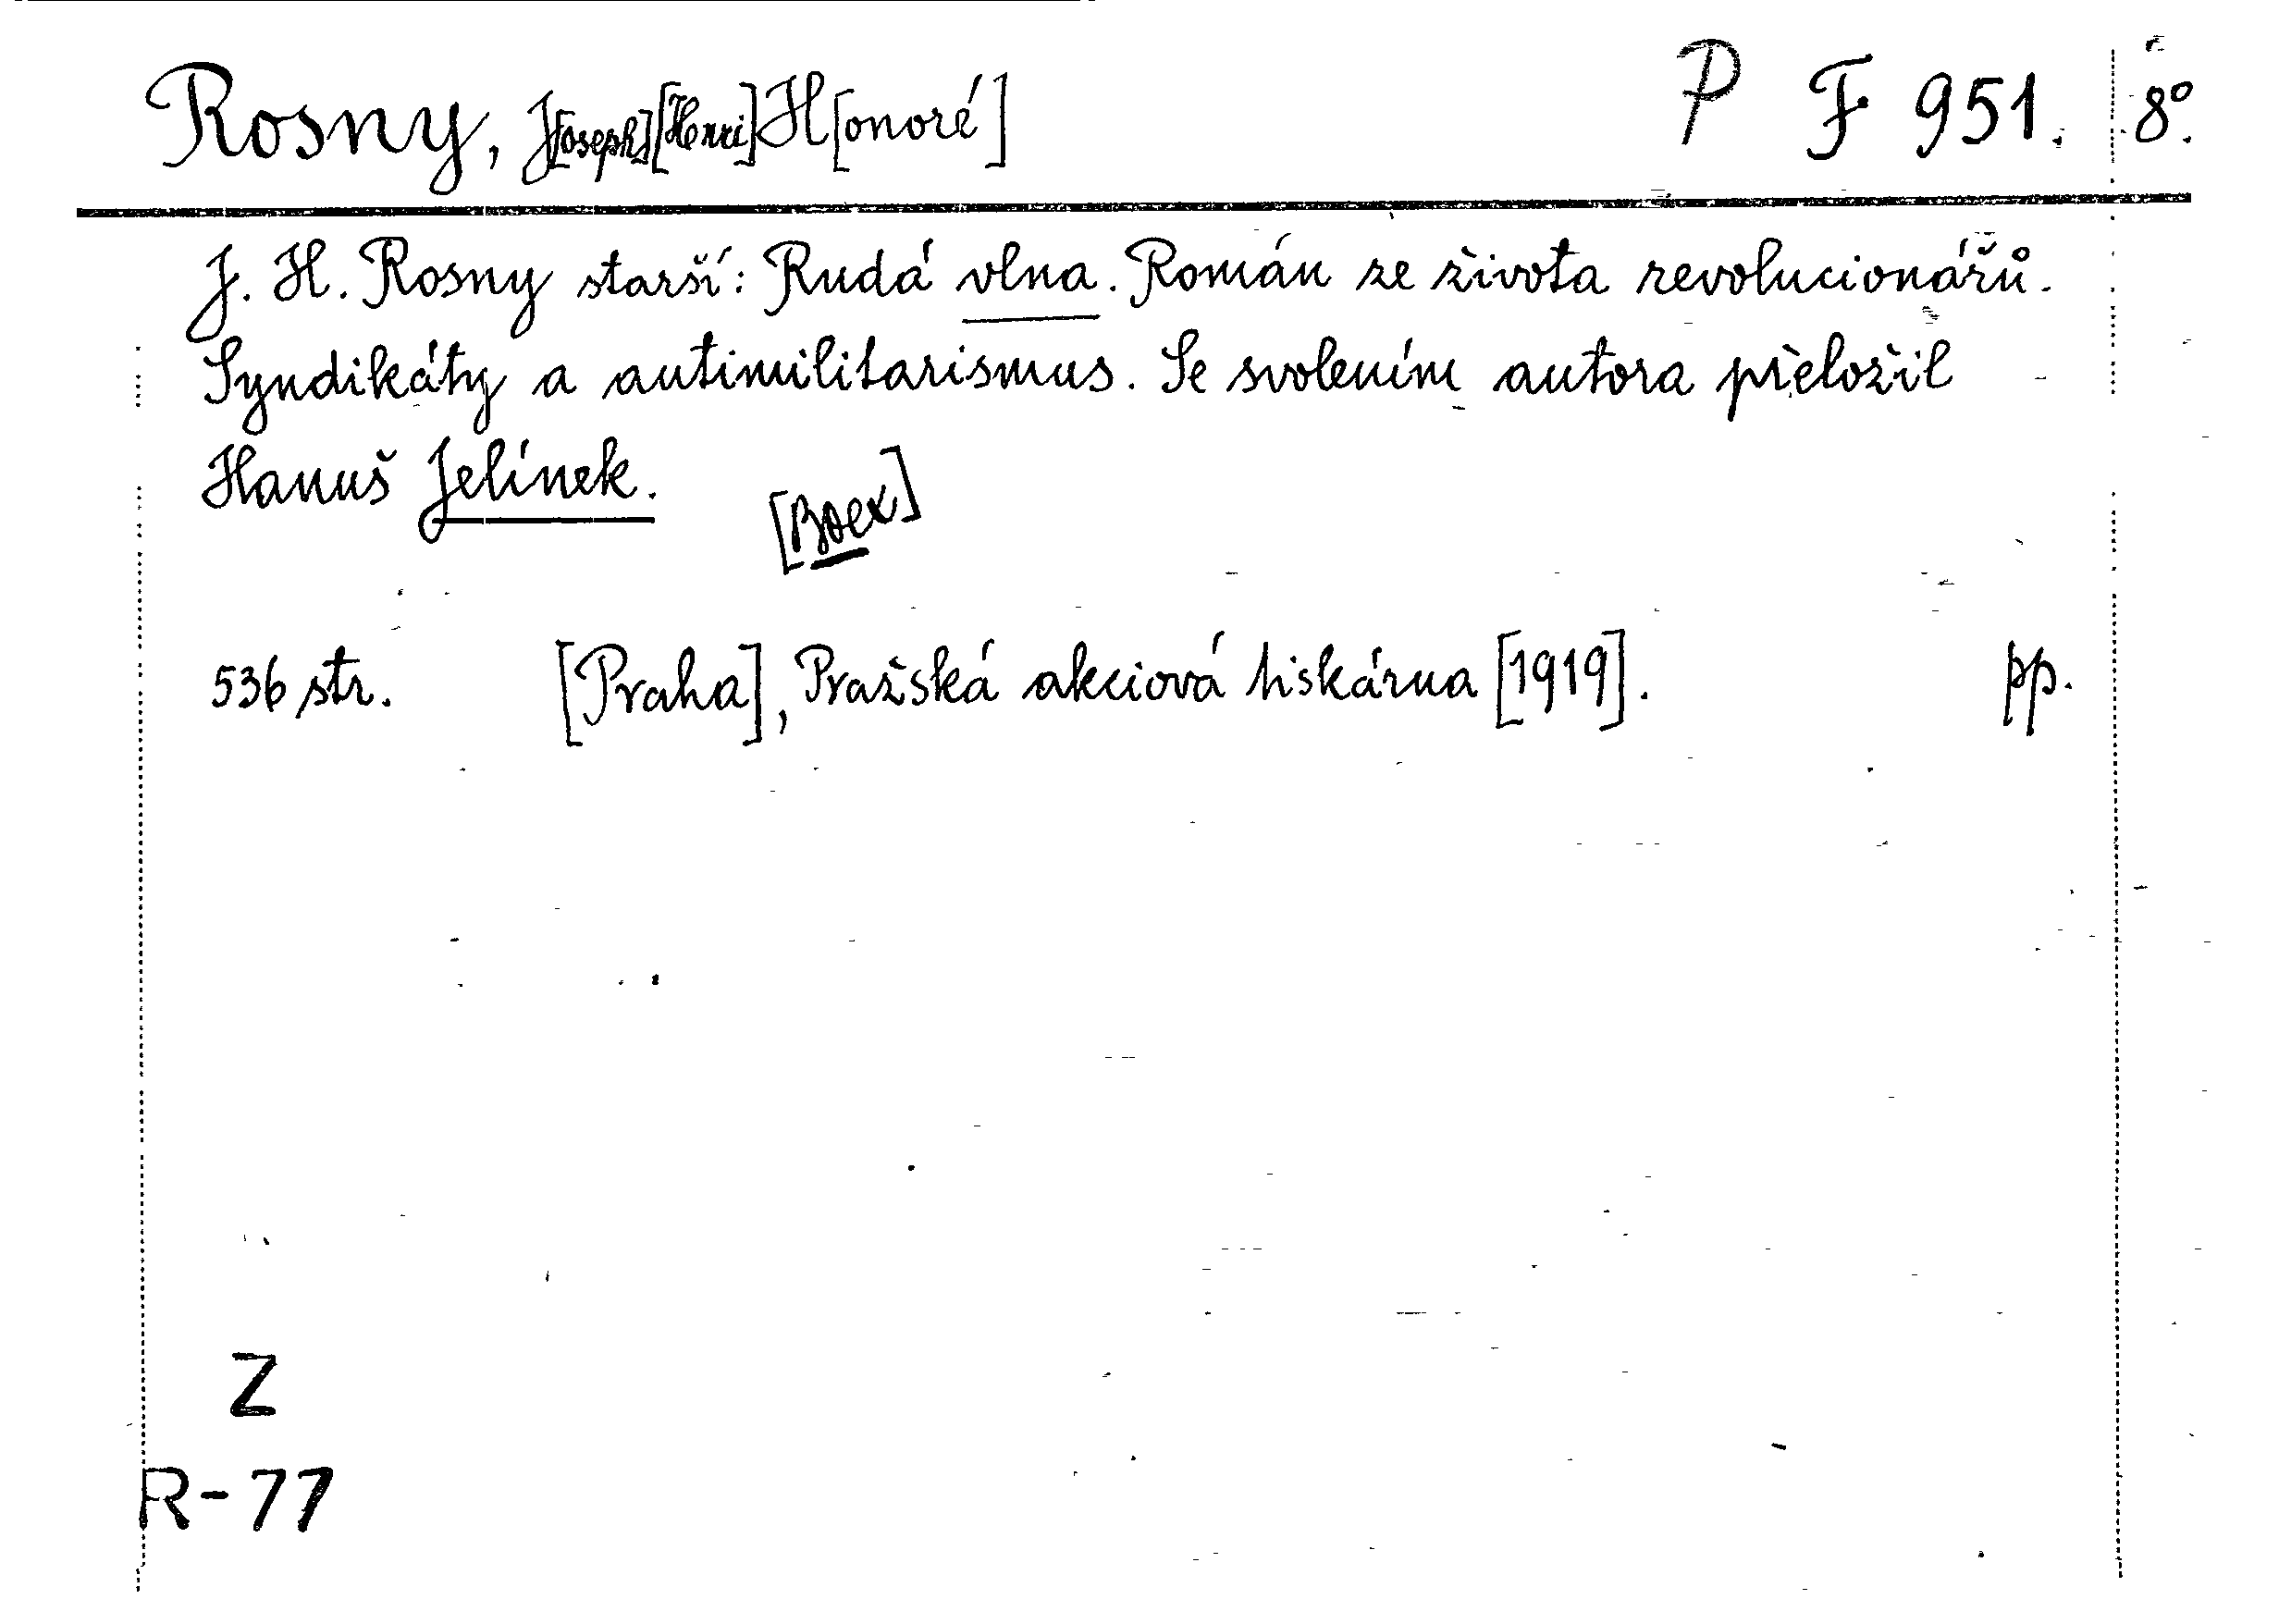 Rosny, J[oseph] [Henri] H[onoré] P F 951. 8°.
J. H. Rosny starší: Rudá vlna. Román ze života revolucionářů.
Syndikáty a antimilitarismus. Se svolením autora přeložil
Hanuš Jelínek.
[Boex]
536 str. [Praha], Pražská akciová tiskárna [1919]. pp.
Z
R-77